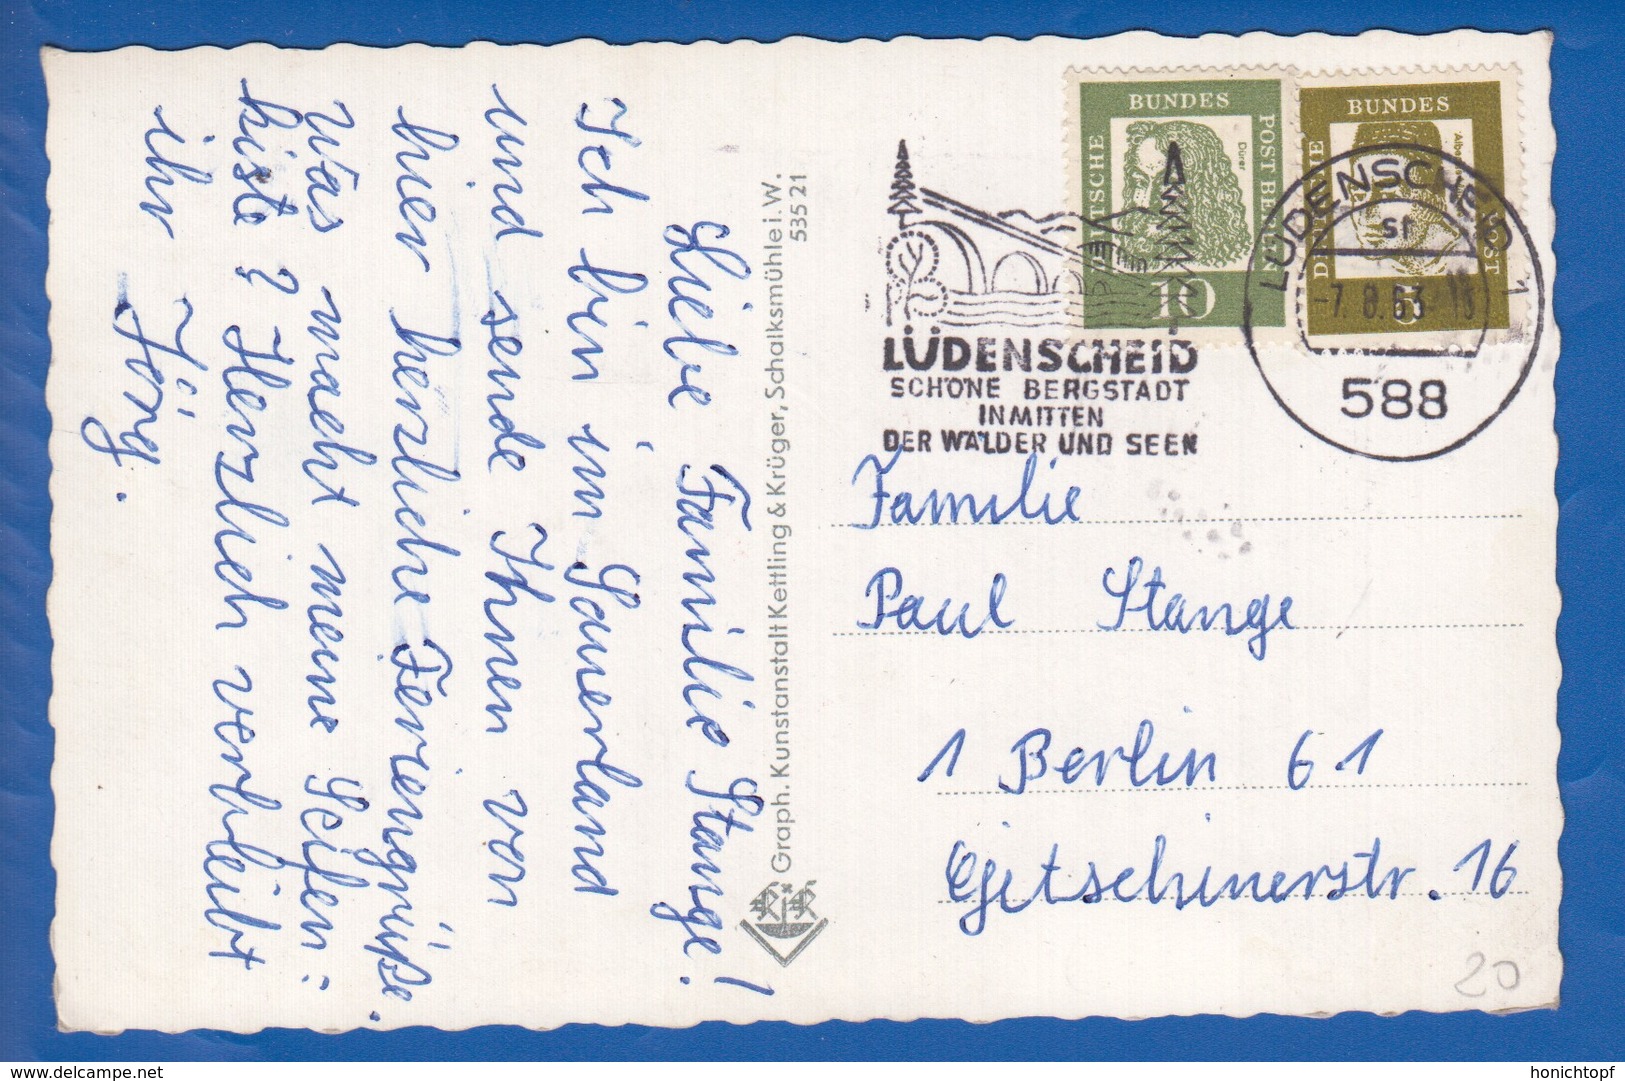 Liebe Familie Stange!
Ich bin im Sauerland
und sende Ihnen von
hier herzliche Feriengrüße.
Was macht meine Seifen-
kiste? Herzlich verbleibt
ihr Jörg.
Graph. Kunstanstalt Kettling & Krüger, Schalksmühle i. W.
53521
BUNDES
POST BERLIN
DEUTSCHE
Dürer
10
BUNDES
POST
DEUTSCHE
5
LÜDENSCHEID
SCHÖNE BERGSTADT
INMITTEN
DER WÄLDER UND SEEN
LÜDENSCHEID 1
sr
-7.8.63-15
588
Familie
Paul Stange
1 Berlin 61
Gitschinerstr. 16
20
www.delcampe.net
honichtopf